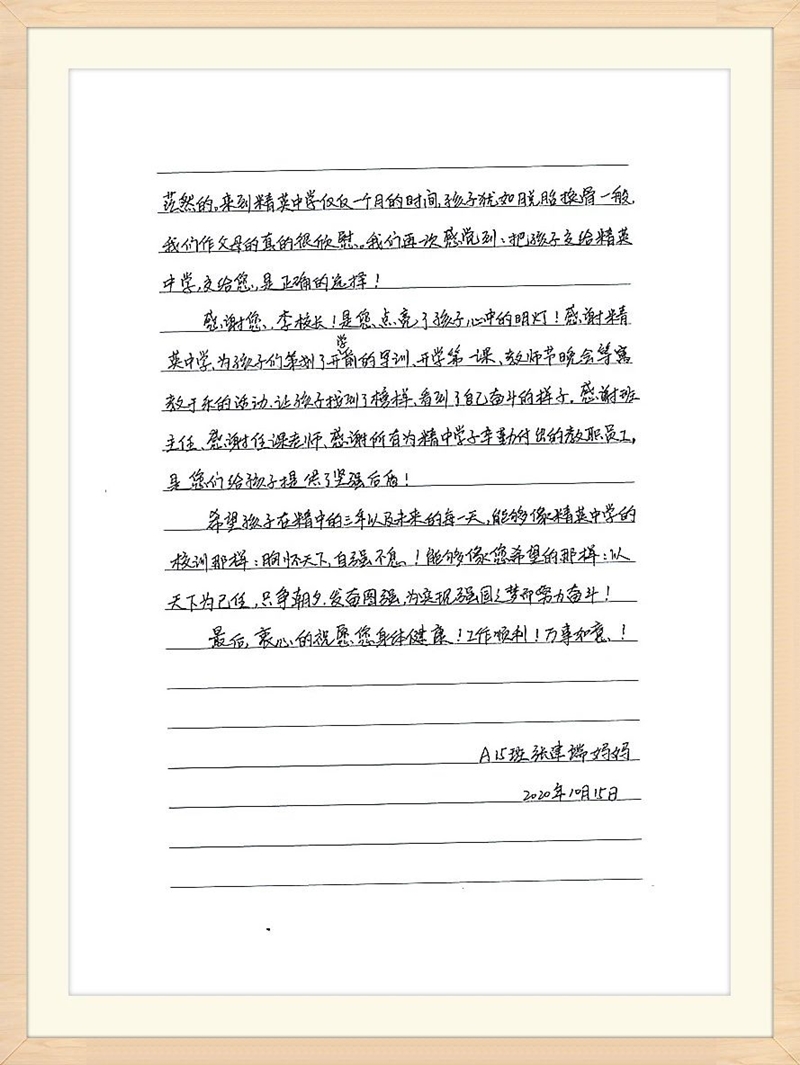 茫然的。来到精英中学仅仅一个月的时间,孩子犹如脱胎换骨一般,
我们作父母的真的很欣慰。我们再次感觉到:把孩子交给精英
中学,交给您,是正确的选择!
感谢您、李校长!是您点亮了孩子心中的明灯!感谢精
英中学、为孩子们策划了开学前的军训、开学第一课、教师节晚会等寓
教于乐的活动,让孩子找到了榜样、看到了自己奋斗的样子。感谢班
主任、感谢任课老师、感谢所有为精中学子辛勤付出的教职员工,
是您们给孩子提供了坚强后盾!
希望孩子在精中的三年以及未来的每一天,能够像精英中学的
校训那样:胸怀天下,自强不息!能够像您希望的那样:以
天下为己任,只争朝夕,发奋图强,为实现强国之梦而努力奋斗!
最后,衷心的祝愿您身体健康!工作顺利!万事如意!
A15班张建端妈妈
2020年10月15日